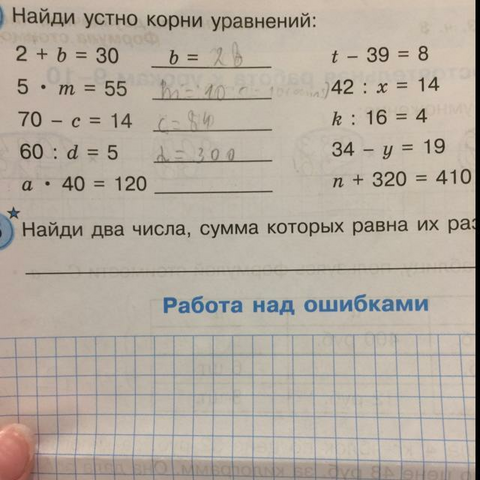 Найди устно корни уравнений:
2 + b = 30 b = 28 t − 39 = 8
5 · m = 55 m = 10 42 : x = 14
70 − c = 14 c = 84 k : 16 = 4
60 : d = 5 d = 300 34 − y = 19
a · 40 = 120 n + 320 = 410
Найди два числа, сумма которых равна их раз
Работа над ошибками